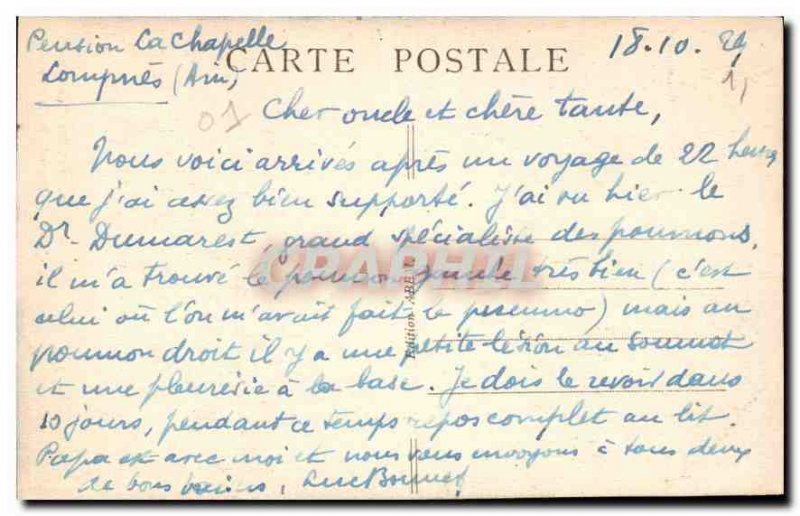 Pension La Chapelle
Lompnès (Ain)
18.10.29
CARTE POSTALE
01
Cher oncle et chère tante,
Nous voici arrivés après un voyage de 22 heures
que j'ai assez bien supporté. J'ai vu hier le
Dr. Dumarest grand spécialiste des poumons,
il m'a trouvé le poumon gauche très bien (c'est
celui où l'on m'avait fait le pneumo) mais au
poumon droit il y a une petite lésion au sommet
et une pleurésie à la base. Je dois le revoir dans
10 jours, pendant ce temps repos complet au lit.
Papa est avec moi et nous vous envoyons à tous deux
de bons baisers, Luc Bonnet
CPAPHIL
Edition